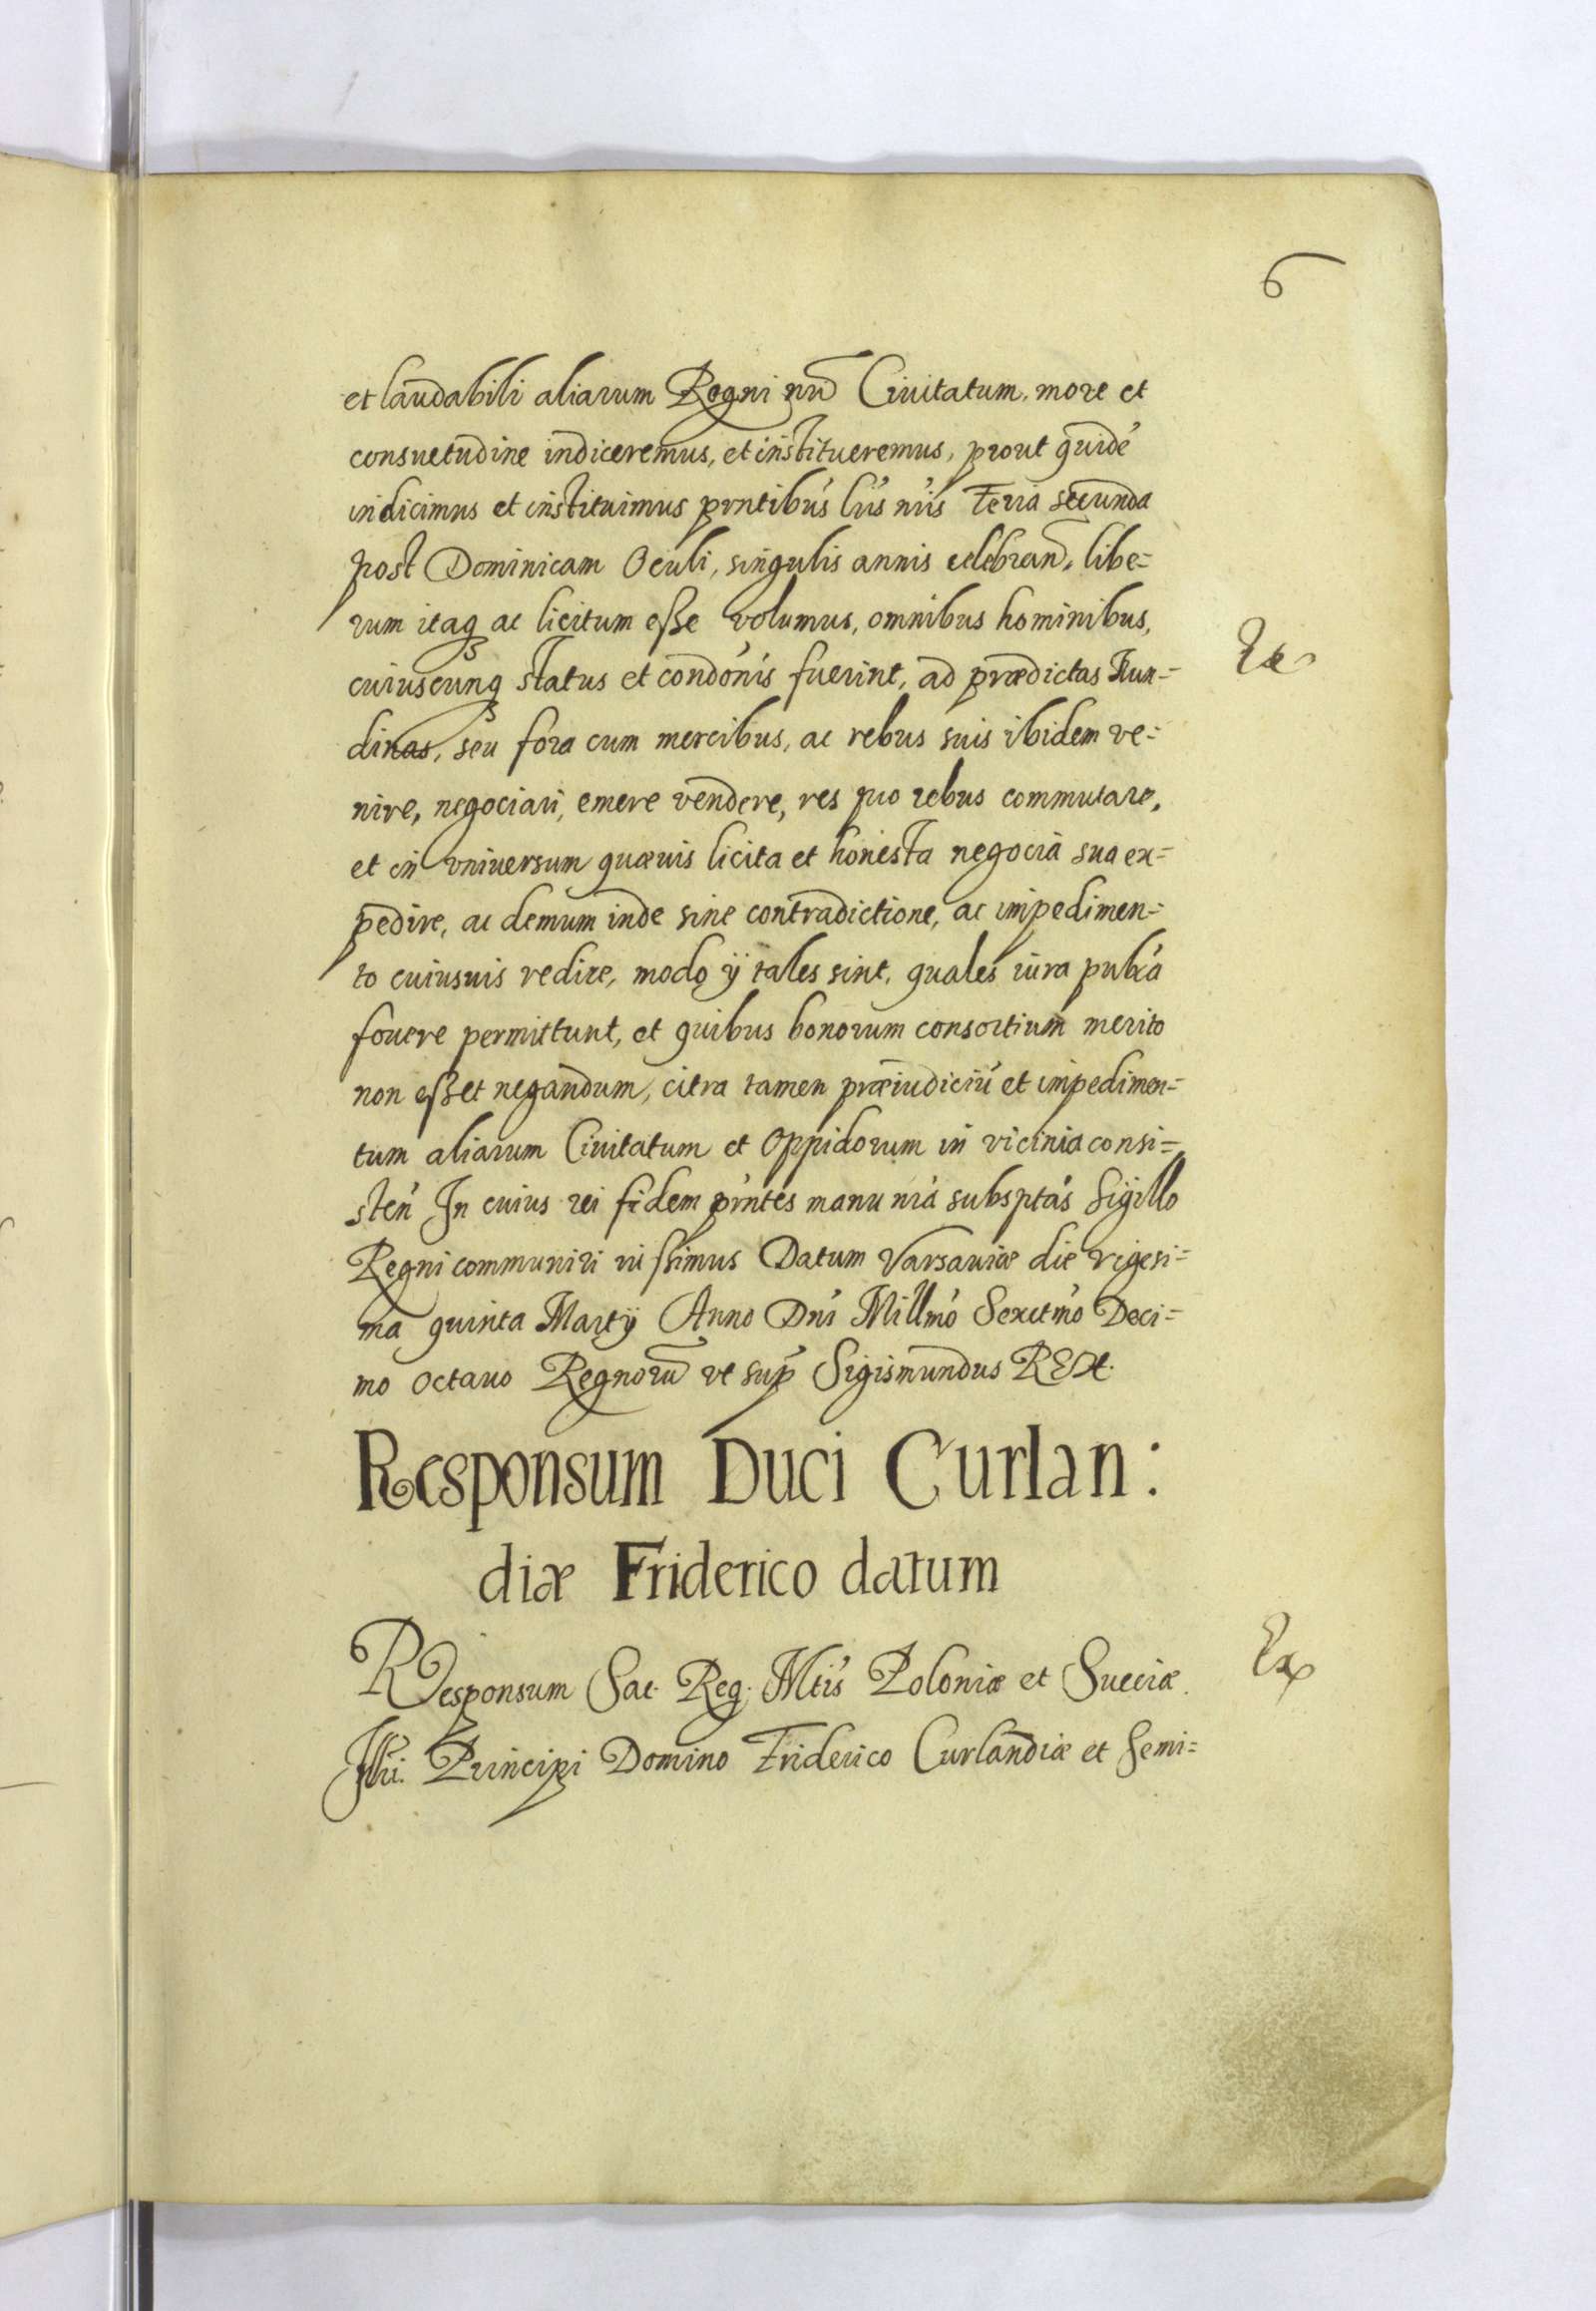 6
et laudabili aliarum Regni nrī Ciuitatum, more et
consuetudine indiceremus, et institueremus, prout quidé
indicimus et instituimus pņtibús lrís nrís Feria secunda
post Dominicam Oculi, singulis annis celebran, libe=
rum itaq ac licitum eße volumus, omnibus hominibus,
cuiuscunq status et condónis fuerint, ad prædictas Nun=
dinas, seu fora cum mercibus, ac rebus suis ibidem ve=
nire, negociari, emere vendere, res pro rebus commutare,
et in vniversum quævis licita et honesta negocia sua ex=
pedire, ac demum inde sine contradictione, ac impedimen=
to cuiusuis redire, modo ij tales sint, quales iura publcá
fouere permittunt, et quibus bonorum consortium merito
non eßet negandum, citra tamen præiudiciú et impedimen=
tum aliarum Ciuitatum et Oppidorum in vicinia consi=
stén In cuius rei fidem pņtes manu nrá subsptás Sigillo
Regni communiri iussimus Datum Varsauiæ die vigesi=
ma quinta Martij Anno Dní Millmó Sexctmó Deci=
mo octauo Regnorū vt sup Sigismundus REX.
Responsum Duci Curlan:
diæ Friderico datum
Responsum Sac. Reg. Mtís Poloniæ et Sueciæ.
Illri. Principi Domino Friderico Curlandiæ et Semi=
Ex